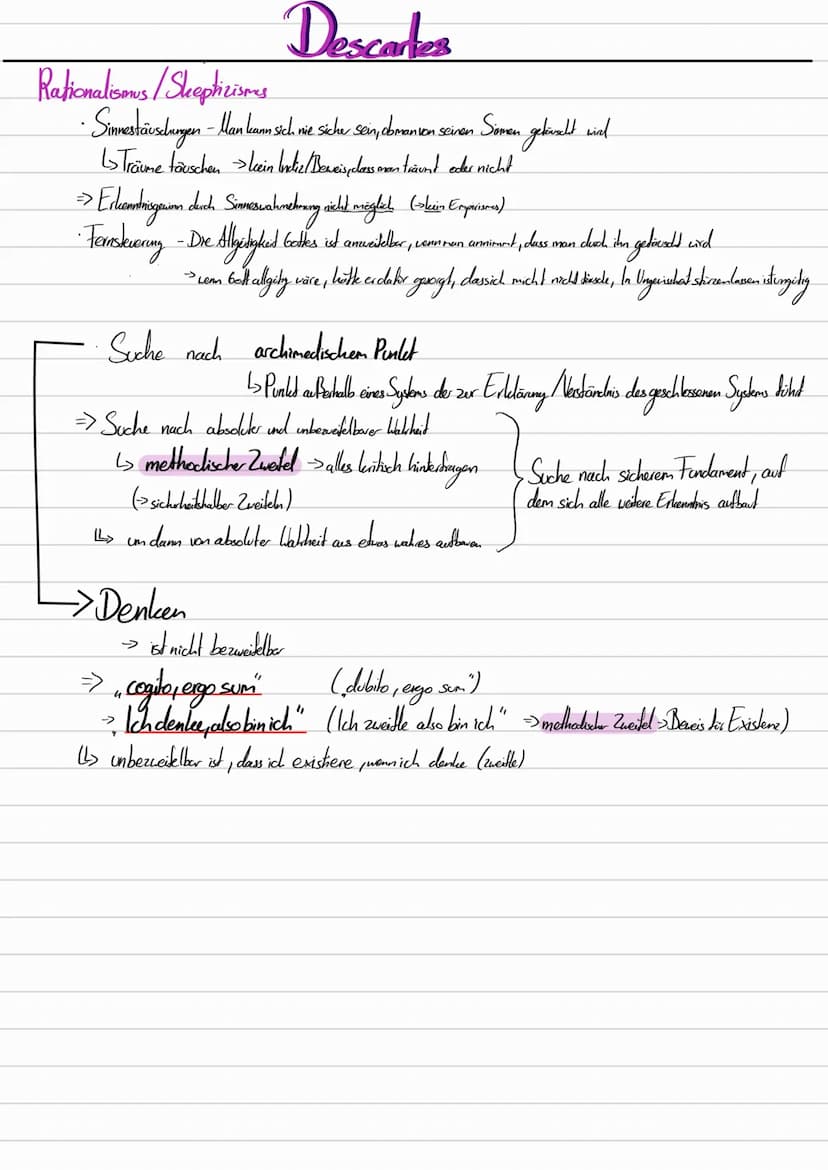 Descartes
Rationalismus/Skeptizismus
· Sinnestäuschungen - Man kann sich nie sicher sein, ob man von seinen Sinnen getäuscht wird
↳ Träume täuschen → kein Indiz/Beweis, dass man träumt oder nicht
⇒ Erkenntnisgewinn durch Sinneswahrnehmung nicht möglich (→ kein Empirismus)
· Fernsteuerung - Die Allgütigkeit Gottes ist anzweifelbar, wenn man annimmt, dass man durch ihn getäuscht wird
→ wenn Gott allgütig wäre, hätte er dafür gesorgt, dass ich mich nicht täusche, In Ungewissheit stürzen lassen ist ungütig
· Suche nach archimedischem Punkt
↳ Punkt außerhalb eines Systems der zur Erklärung/Verständnis des geschlossenen Systems führt
⇒ Suche nach absoluter und unbezweifelbarer Wahrheit
↳ methodischer Zweifel → alles kritisch hinterfragen
(→ sicherheitshalber Zweifeln)
↳ um dann von absoluter Wahrheit aus etwas wahres aufbauen
Suche nach sicherem Fundament, auf
dem sich alle weitere Erkenntnis aufbaut
→ Denken
→ ist nicht bezweifelbar
⇒ „cogito, ergo sum" („dubito, ergo sum")
→ „Ich denke, also bin ich" (Ich zweifle also bin ich" ⇒ methodischer Zweifel → Beweis für Existenz)
↳ unbezweifelbar ist, dass ich existiere, wenn ich denke (zweifle)